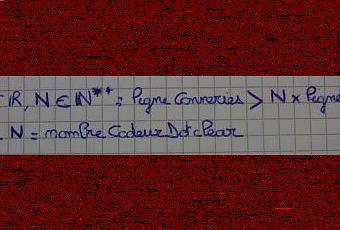 ℝ, N ∈ ℕ*⁺ : Pegme Conneries > N × Pegme
N = nombre Codeur Dot clear